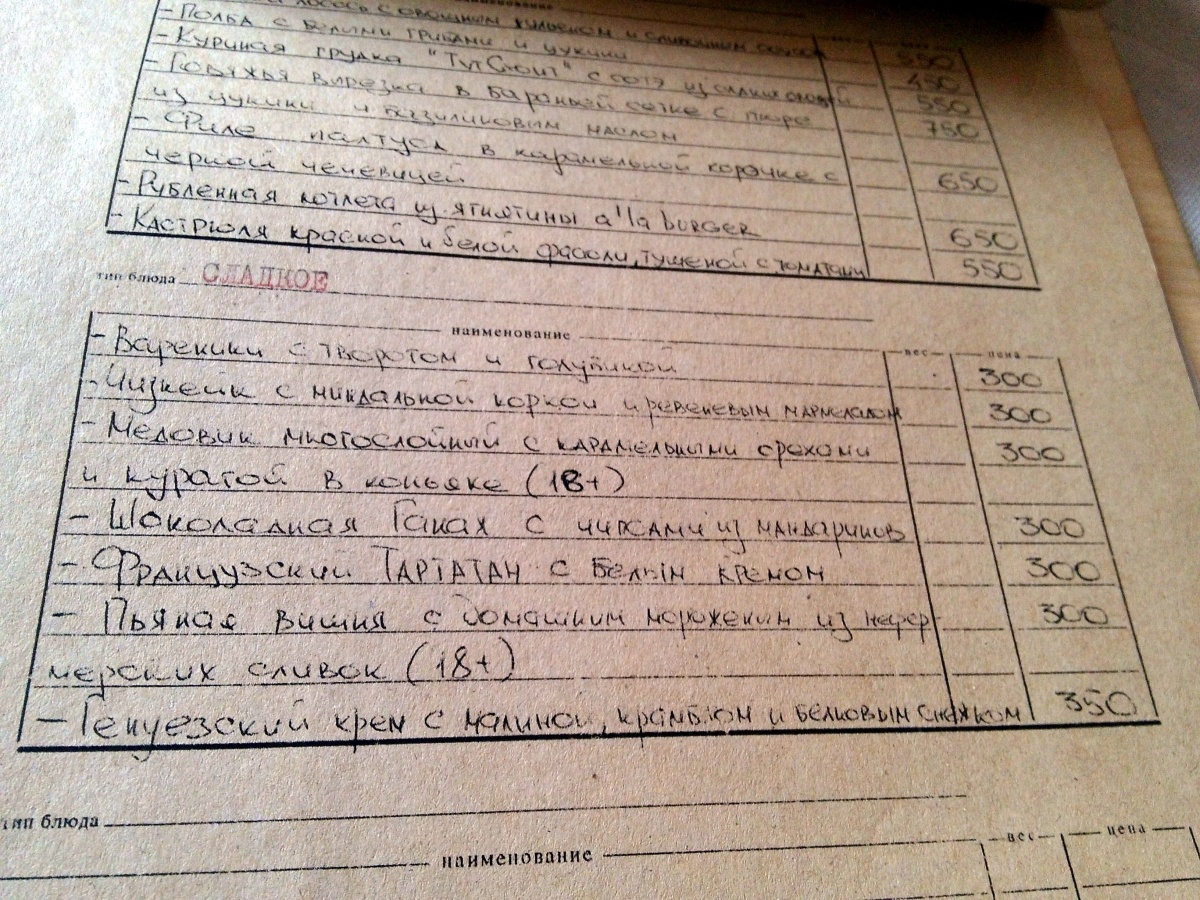 наименование
лосось с овощным жульеном и сливочным соусом 550
- Полба с белыми грибами и цукини 450
- Куриная грудка "ТутСтоит" с сотэ из сладких овощей 550
- Говяжья вырезка в бараньей сетке с пюре 750
из цукини и базиликовым маслом
- Филе палтуса в карамельной корочке с 650
черной чечевицей
- Рубленная котлета из ягнятины a'la burger 650
- Кастрюля красной и белой фасоли, тушеной с томатами 550
тип блюда СЛАДКОЕ
наименование вес цена
- Вареники с творогом и голубикой 300
- Чизкейк с миндальной коркой и ревеневым мармеладом 300
- Медовик многослойный с карамельными орехами 300
и курагой в коньяке (18+)
- Шоколадная Ганаж с чипсами из мандаринов 300
- Французский ТАРТАТАН с Белым кремом 300
- Пьяная вишня с домашним мороженым из 300
мерских сливок (18+)
- Генуезский крем с малиной, крамблом и белковым снежком 350
тип блюда
наименование вес цена